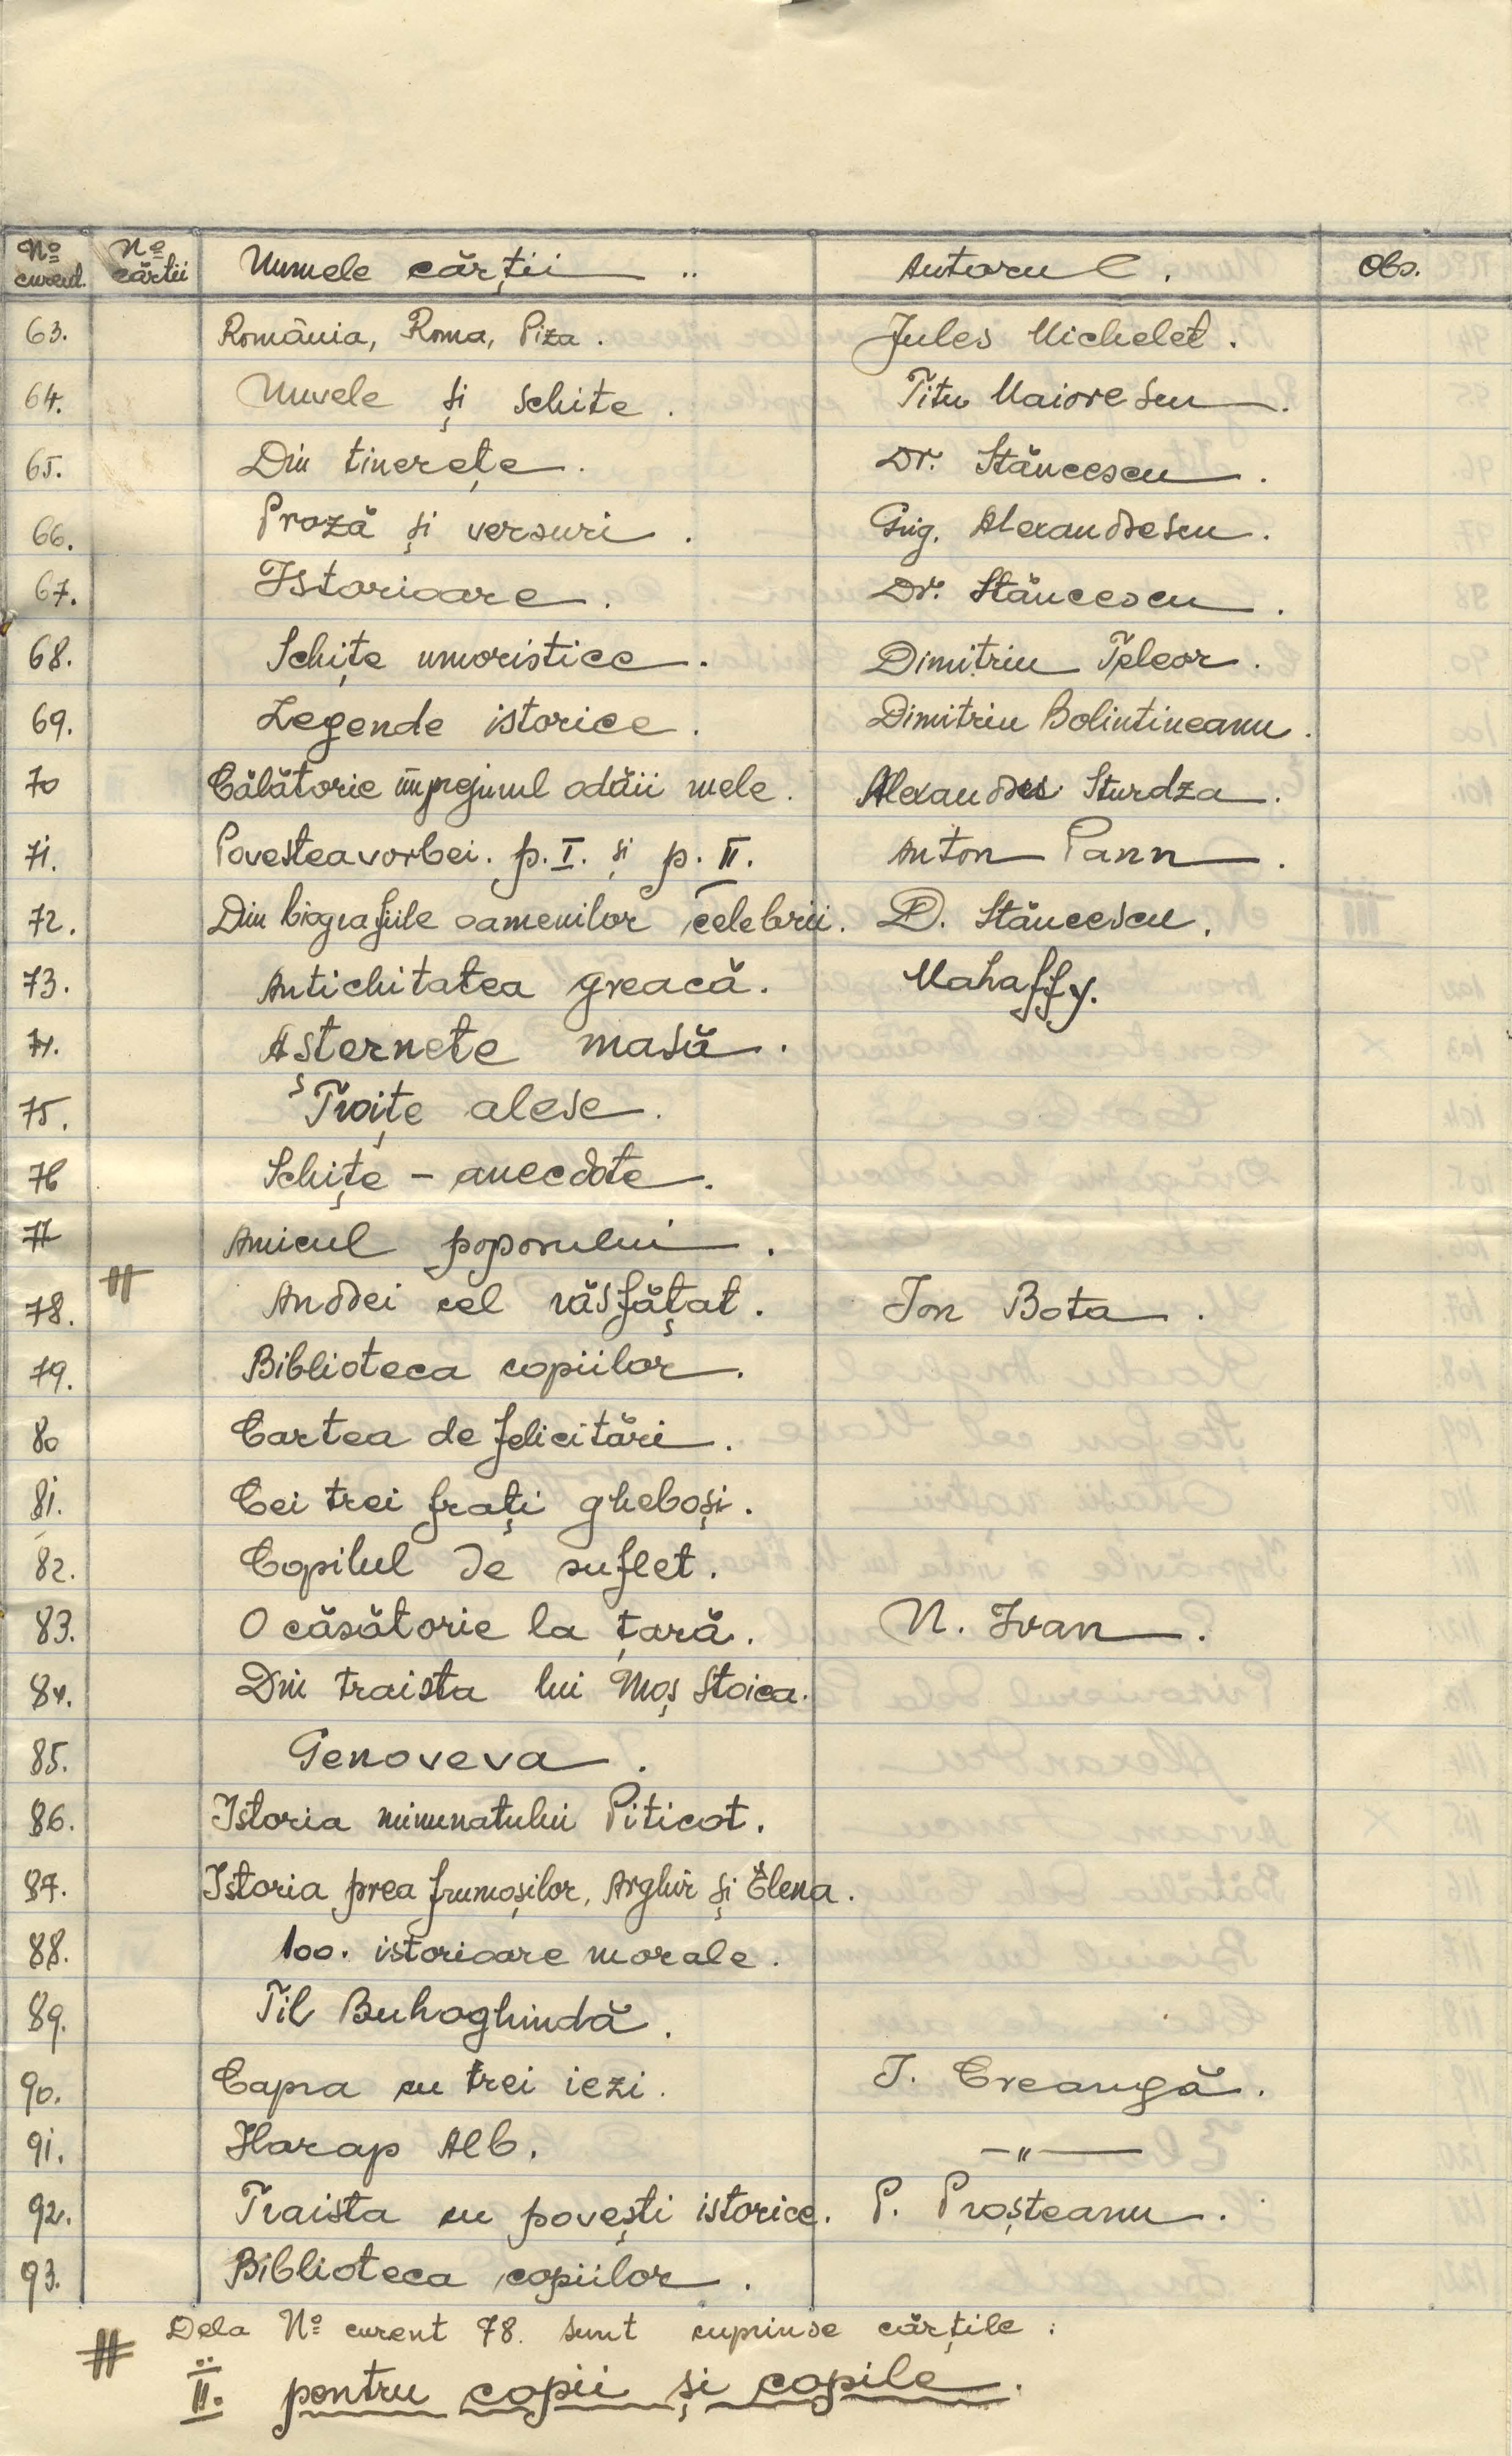 Nº curent. Nº cărtii Numele cărții Autorul. Obs.
63. România, Roma, Piza. Jules Michelet.
64. Nuvele și schite. Titu Maiorescu.
65. Din tinerețe. Dr. Stăncescu.
66. Proză și versuri. Grig. Alexandrescu.
67. Istorioare. Dr. Stăncescu.
68. Schițe umoristice. Dimitriu Teleor.
69. Legende istorice. Dimitriu Bolintineanu.
70 Călătorie împrejurul odăii mele. Alexandru Sturdza.
71. Povestea vorbei. p. I. și p. II. Anton Pann.
72. Din biografiile oamenilor celebrii. D. Stăncescu.
73. Antichitatea greacă. Mahaffy.
74. Așternete masă.
75. Troițe alese.
76 Schițe - anecdote.
77 Amicul poporului.
78. # Andrei cel răsfățat. Ion Bota.
79. Biblioteca copiilor.
80 Cartea de felicitări.
81. Cei trei frați gheboși.
82. Copilul de suflet.
83. O căsătorie la țară. N. Ivan.
84. Din traista lui Moș Stoica.
85. Genoveva.
86. Istoria minunatului Piticot.
87. Istoria prea frumoșilor, Arghir și Elena.
88. 100. istorioare morale.
89. Til Buhoghindă.
90. Capra cu trei iezi. I. Creangă.
91. Harap Alb. —"—
92. Traista cu povești istorice. P. Proșteanu.
93. Biblioteca copiilor.
# Dela Nº curent 78. sunt cuprinse cărțile:
II. pentru copii și copile.